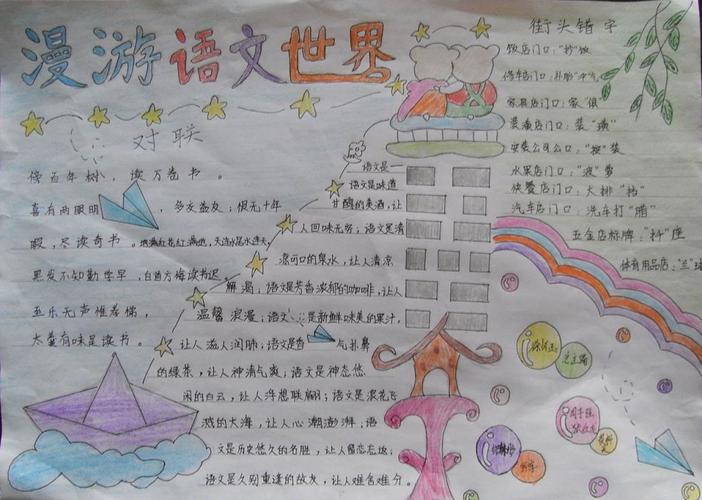 漫游语文世界
对联
傍百年树，读万卷书。
喜有两眼明，多交益友；恨无十年
暇，尽读奇书。地满红花红满地，天连水尾水连天
黑发不知勤学早，白首方悔读书迟。
至乐无声惟孝悌，
太羹有味是读书。
语文是一
语文是味道
甘醇的美酒，让
人回味无穷；语文是清
凉可口的泉水，让人清凉
解渴；语文是芳香浓郁的咖啡，让人
温馨浪漫；语文是新鲜味美的果汁，
让人滋人润肺；语文是香气扑鼻
的绿茶，让人神清气爽；语文是神态悠
闲的白云，让人浮想联翩；语文是浪花飞
溅的大海，让人心潮澎湃；语
文是历史悠久的名胜，让人留恋忘返；
语文是久别重逢的故友，让人难舍难分。
街头错字
饭店门口："抄"饭
修车店门口：补胎"冲"气
家具店门口：家"俱"
装潢店门口：装"璜"
安装公司门口："按"装
水果店门口："波"萝
快餐店门口：大排"挡"
汽车店门口：洗车打"腊"
五金店标牌："抻"座
体育用品店："兰"球